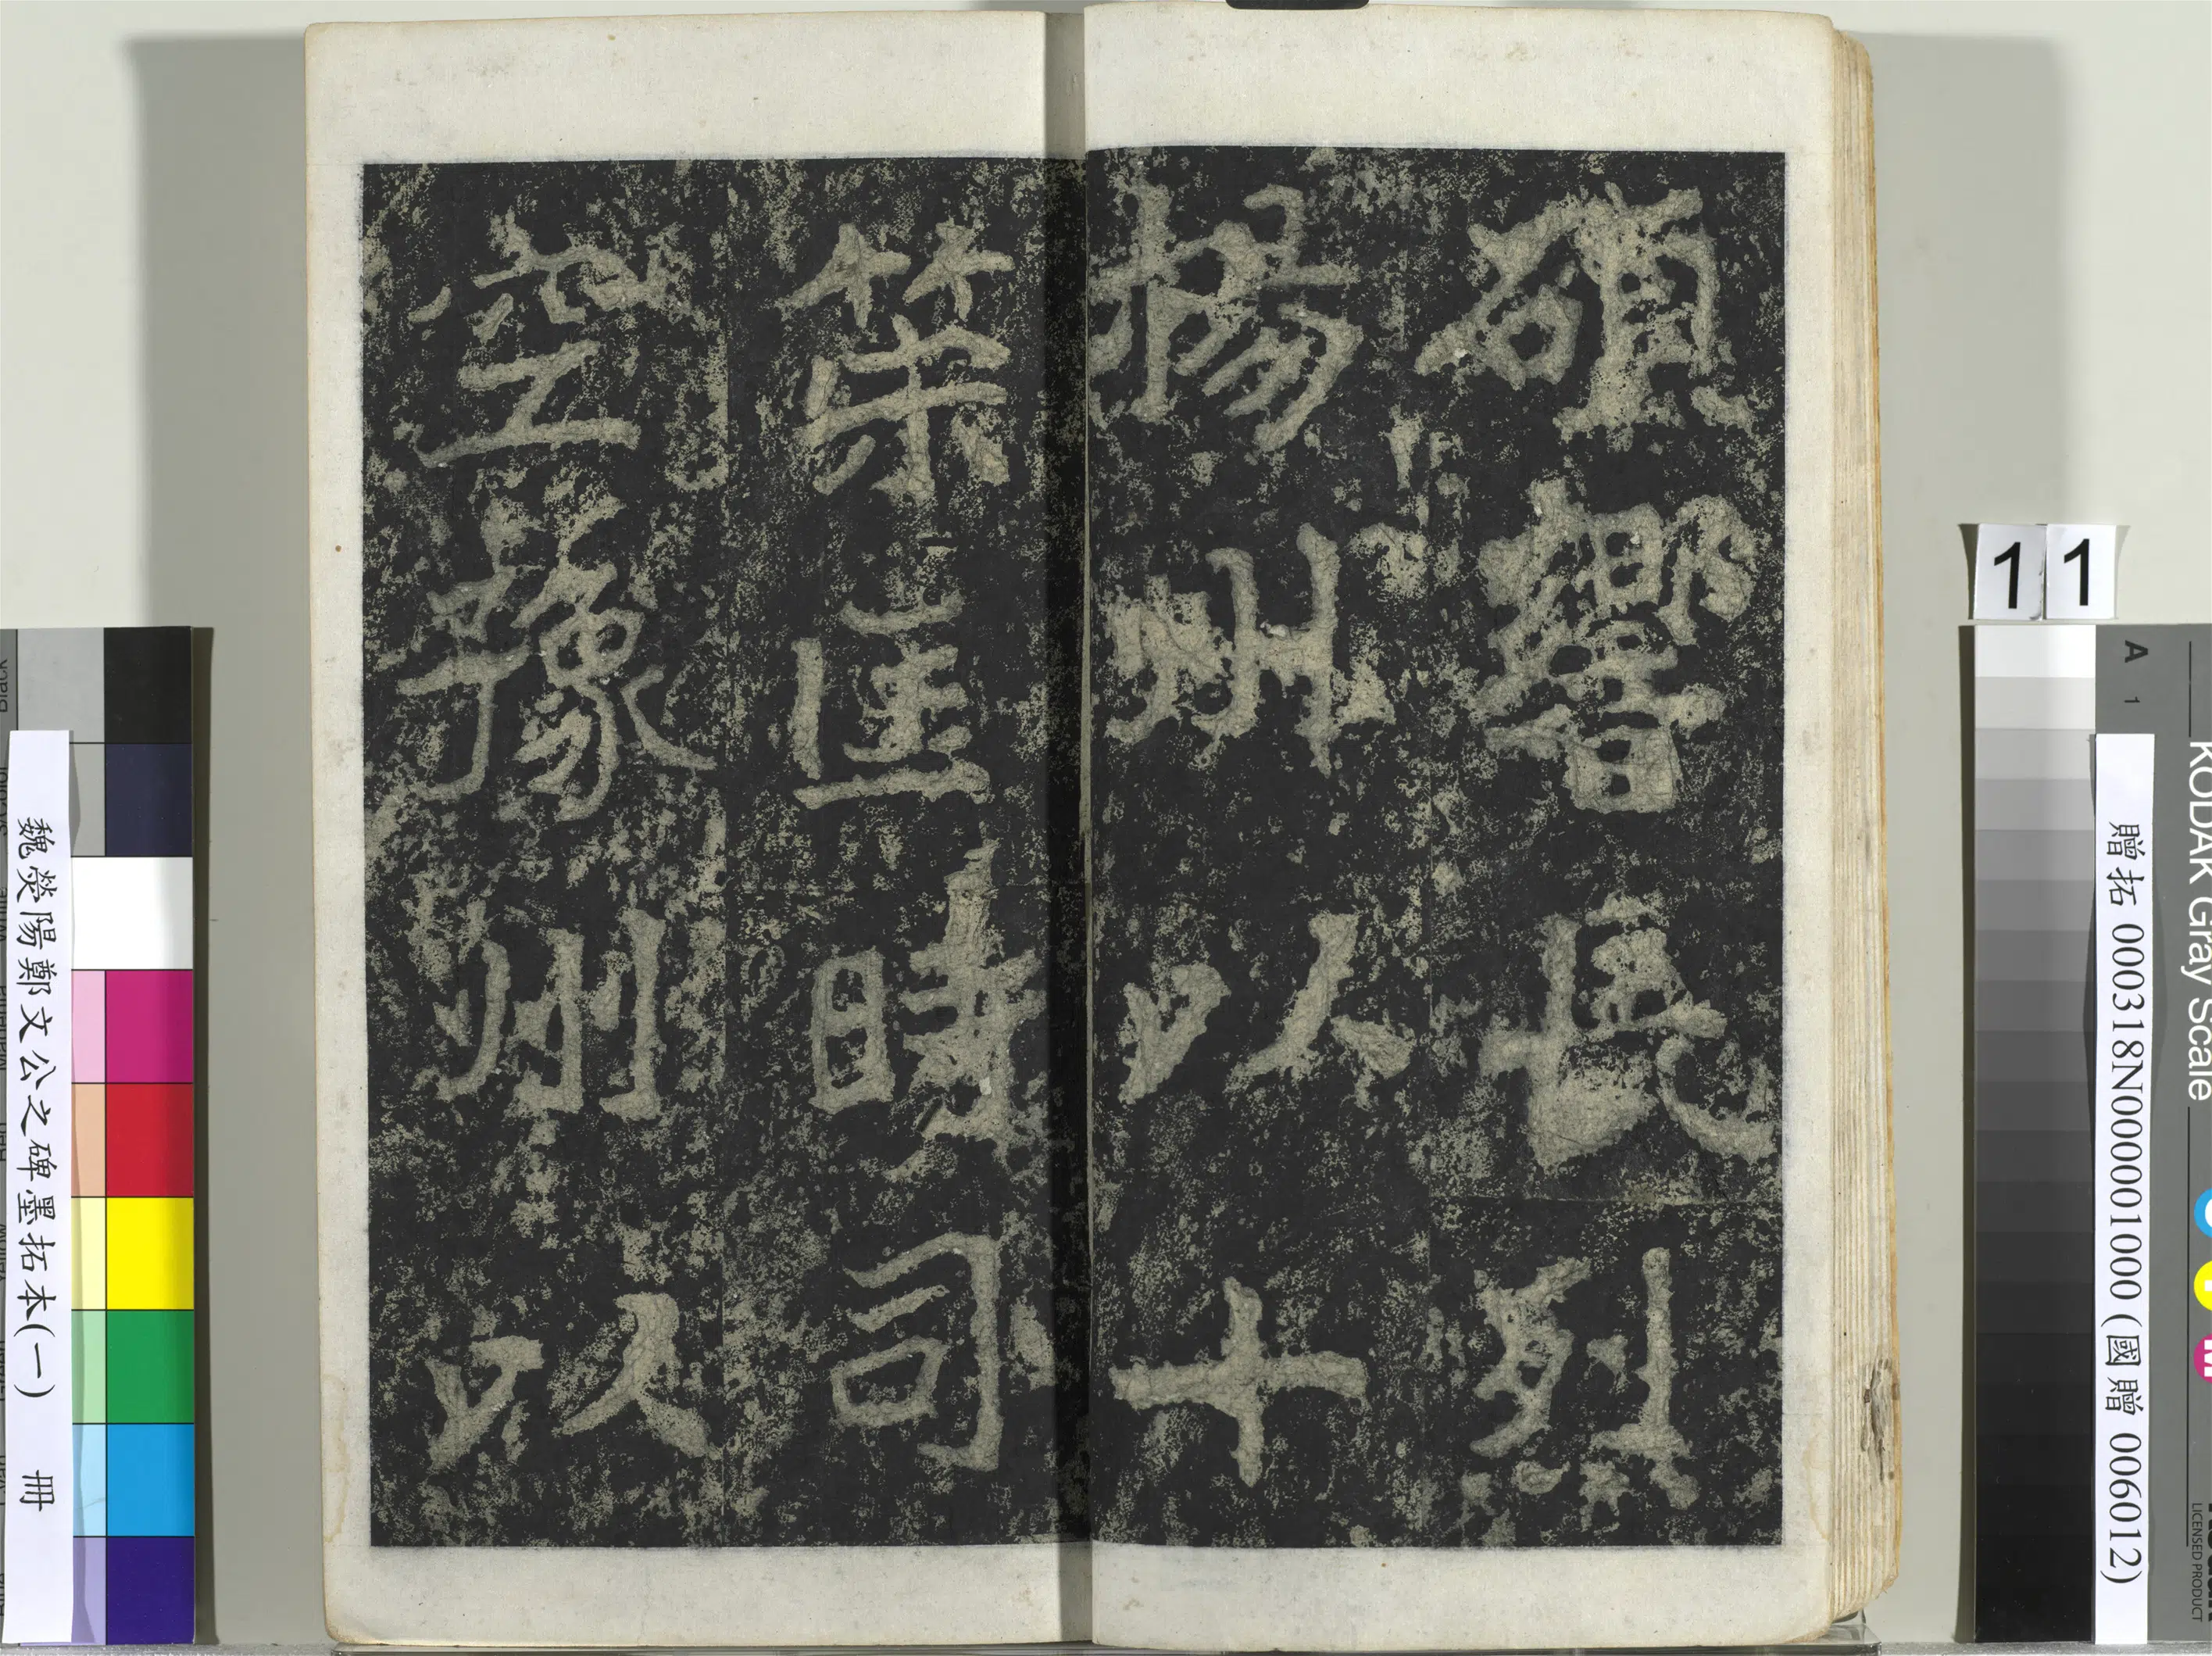 碩響長烈
揚州以十
策匡時司
空豫州以
11
贈拓 000318N000001000 (國贈 006012)
魏熒陽鄭文公之碑墨拓本(一) 冊
KODAK Gray Scale
A 1
LICENSED PRODUCT